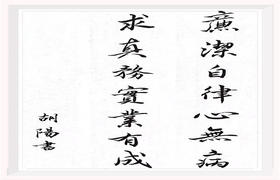 廉潔自律心無病
求真務實業有成
胡陽書